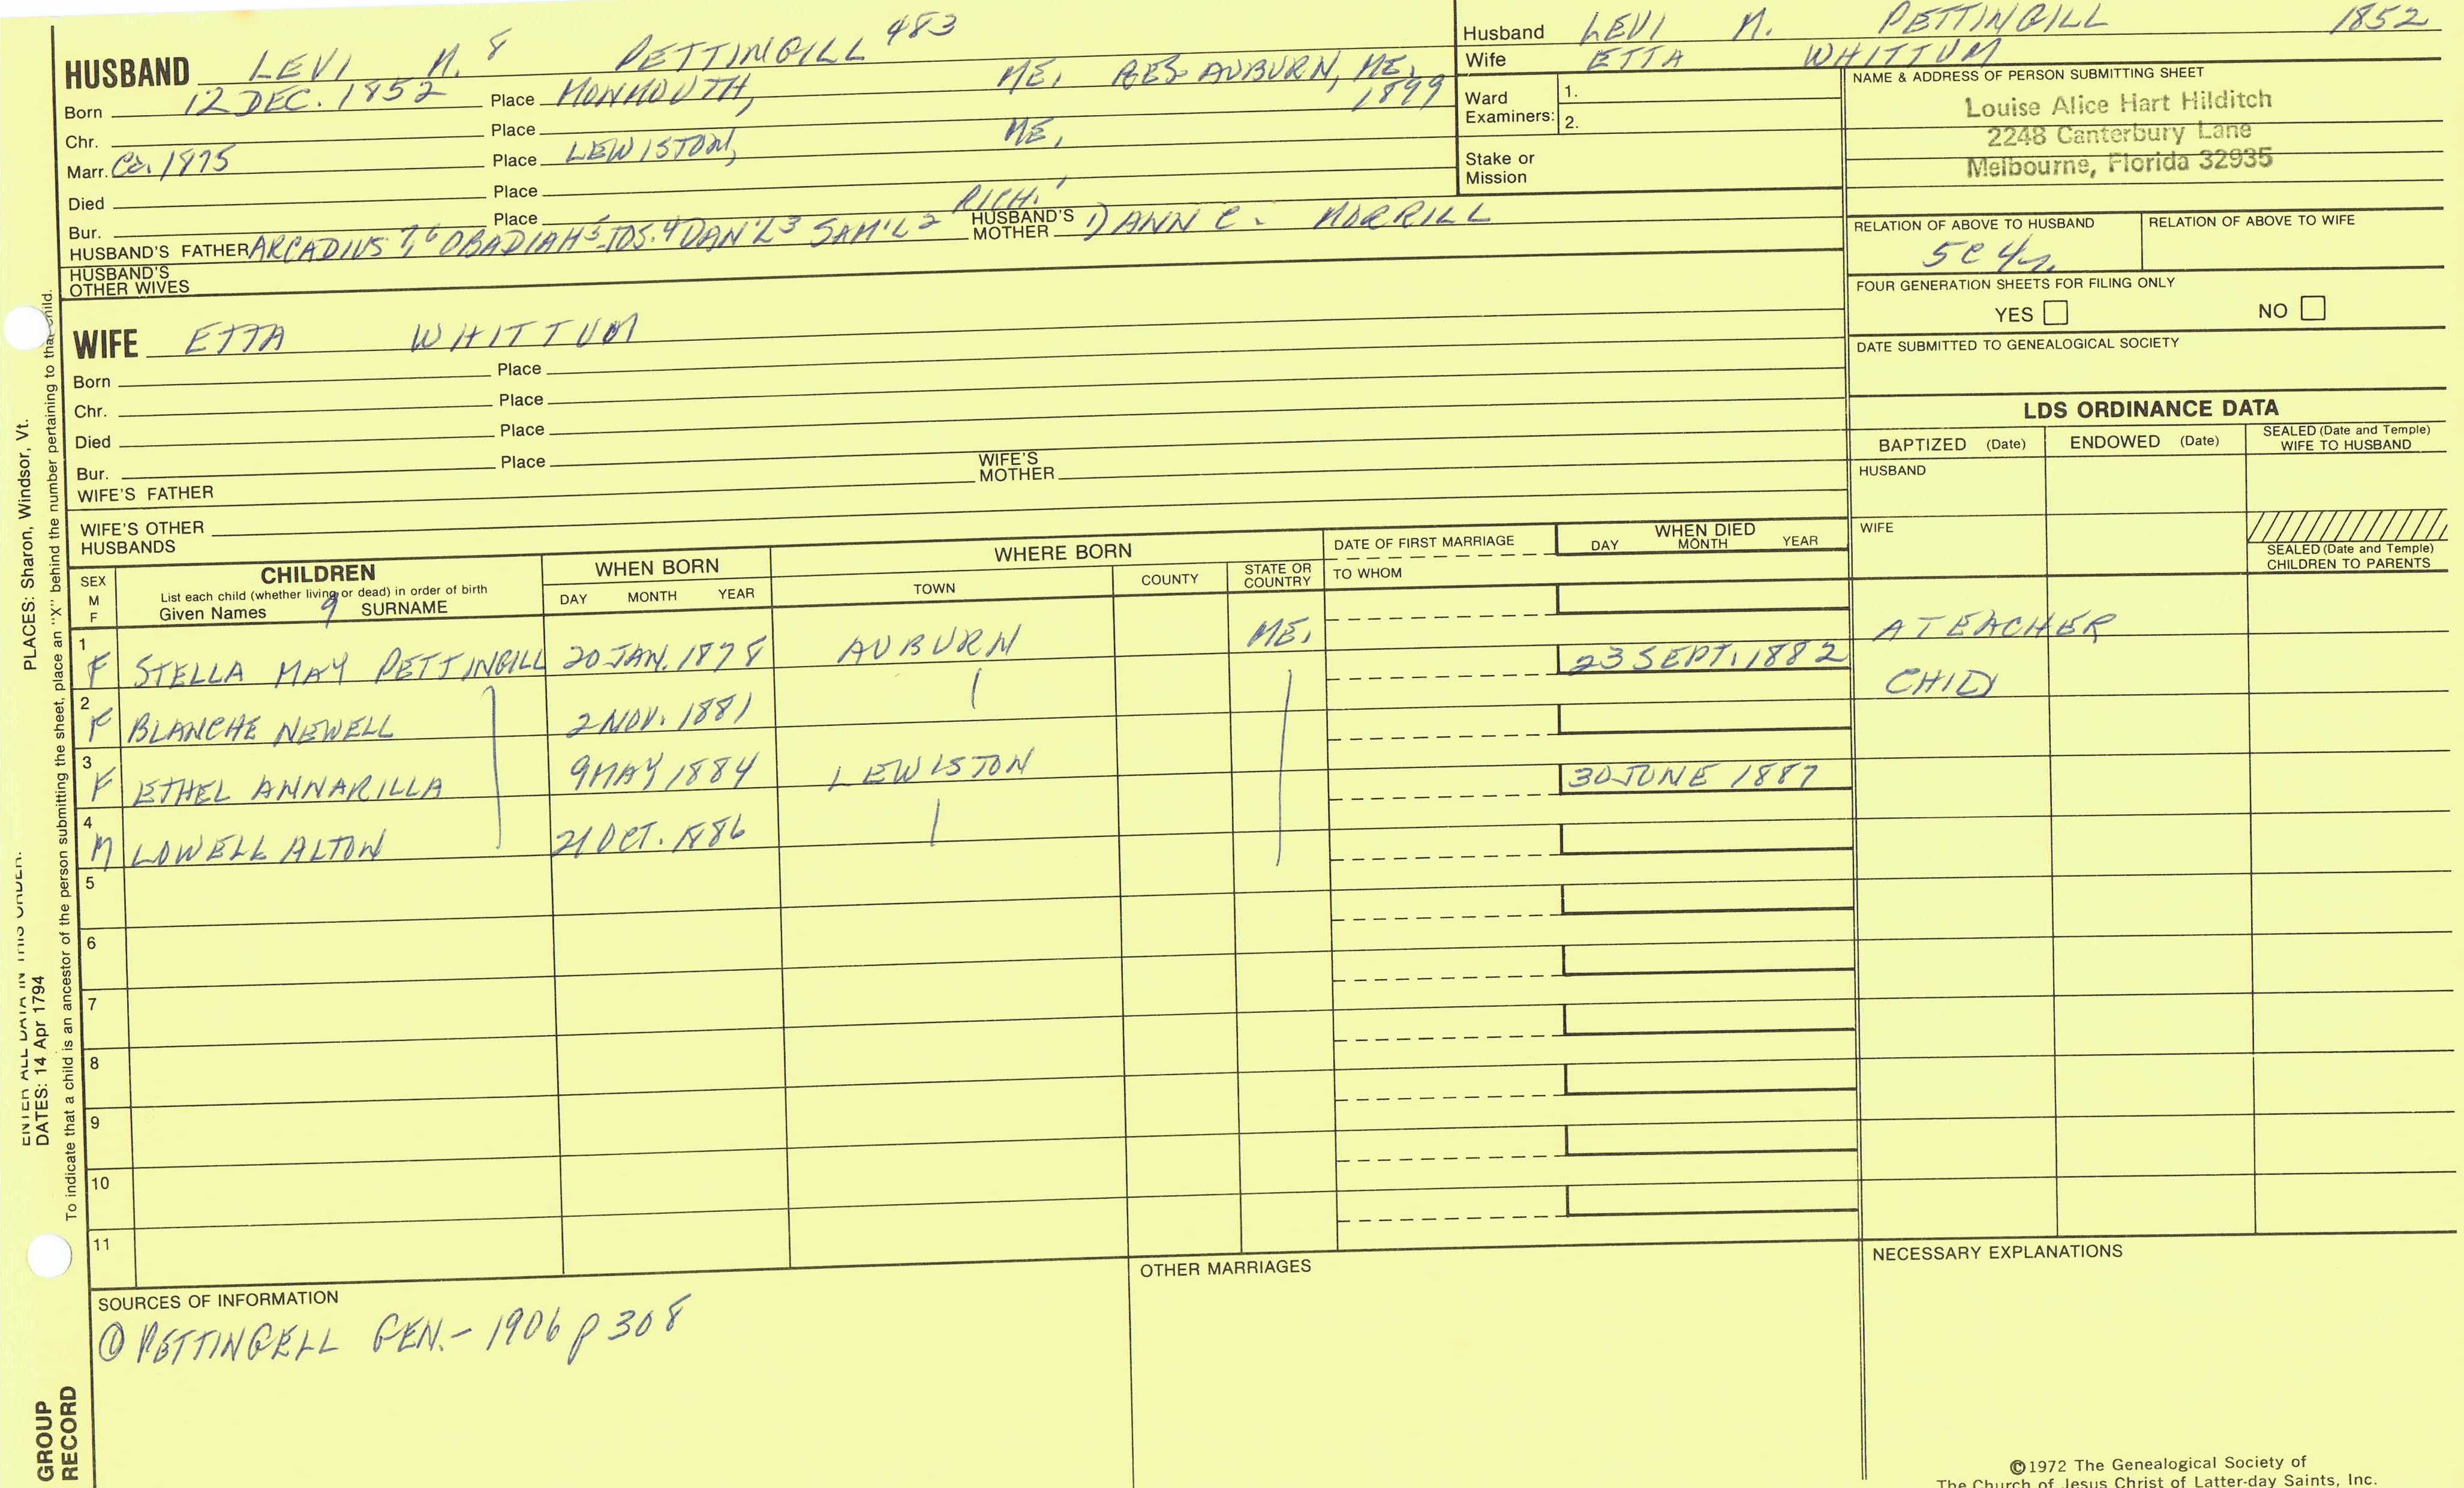 HUSBAND LEVI M. 8 PETTINGILL 483
Born 12 DEC. 1852 Place MONMOUTH, ME, RES. AUBURN, ME, 1899
Chr. Place
Marr. Ca. 1875 Place LEWISTON, ME,
Died Place
Bur. Place
HUSBAND'S FATHER ARCADIUS 7, 6 OBADIAH 5 JOS. 4 DAN'L 3 SAM'L 2 RICH. 1 HUSBAND'S MOTHER 1) ANN C. MORRILL
HUSBAND'S OTHER WIVES
Husband LEVI M. PETTINGILL 1852
Wife ETTA WHITTUM
Ward Examiners: 1.
2.
Stake or Mission
NAME & ADDRESS OF PERSON SUBMITTING SHEET
Louise Alice Hart Hilditch
2248 Canterbury Lane
Melbourne, Florida 32935
RELATION OF ABOVE TO HUSBAND RELATION OF ABOVE TO WIFE
5C 4r.
FOUR GENERATION SHEETS FOR FILING ONLY
YES NO
DATE SUBMITTED TO GENEALOGICAL SOCIETY
WIFE ETTA WHITTUM
Born Place
Chr. Place
Died Place
Bur. Place
WIFE'S FATHER WIFE'S MOTHER
WIFE'S OTHER HUSBANDS
LDS ORDINANCE DATA
BAPTIZED (Date) ENDOWED (Date) SEALED (Date and Temple) WIFE TO HUSBAND
HUSBAND
WIFE
SEALED (Date and Temple) CHILDREN TO PARENTS
SEX M F CHILDREN List each child (whether living or dead) in order of birth Given Names 9 SURNAME WHEN BORN DAY MONTH YEAR WHERE BORN TOWN COUNTY STATE OR COUNTRY DATE OF FIRST MARRIAGE TO WHOM WHEN DIED DAY MONTH YEAR
1 F STELLA MAY PETTINGILL 20 JAN. 1878 AUBURN ME, A TEACHER
2 F BLANCHE NEWELL 2 NOV. 1881 23 SEPT. 1882 CHILD
3 F ETHEL ANNARILLA 9 MAY 1884 LEWISTON
4 M LOWELL ALTON 21 OCT. 1886 30 JUNE 1887
5
6
7
8
9
10
11
SOURCES OF INFORMATION
① PETTINGELL GEN. - 1906 p 308
OTHER MARRIAGES
NECESSARY EXPLANATIONS
©1972 The Genealogical Society of
The Church of Jesus Christ of Latter-day Saints, Inc.
PLACES: Sharon, Windsor, Vt.
ENTER ALL DATA IN THIS ORDER:
DATES: 14 Apr 1794
To indicate that a child is an ancestor of the person submitting the sheet, place an "X" behind the number pertaining to that child.
GROUP
RECORD